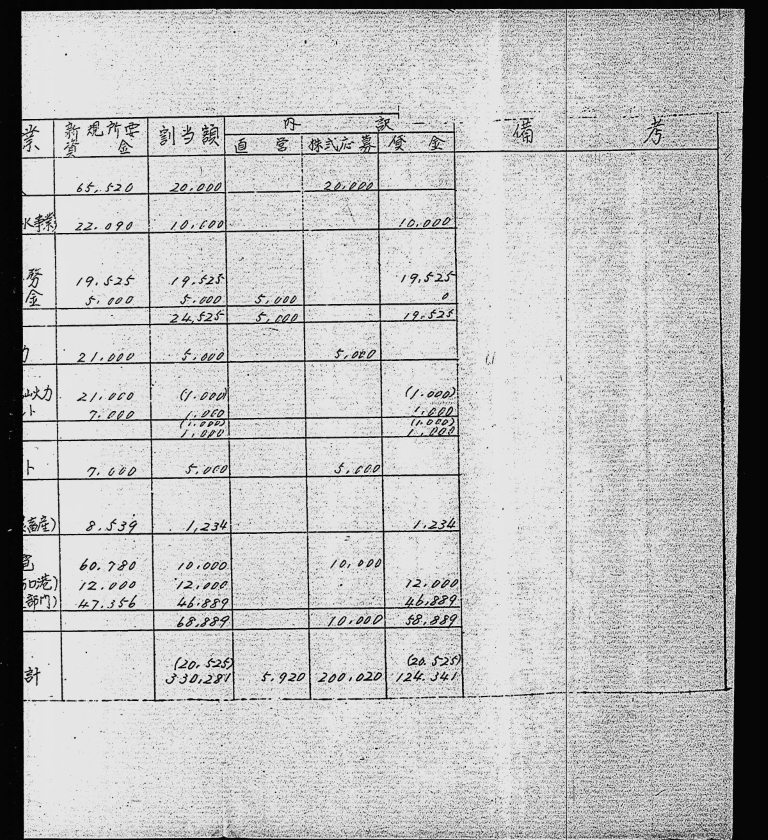 業 新規所要資金 割当額 内訳 備考
直営 株式応募 貸金
65,520 20,000 20,000
水事業) 22.090 10,000 10,000
務 19.525 19.525 19.525
金 5,000 5,000 5,000 0
24,525 5,000 19.525
力 21,000 5,000 5,000
山火力 21,000 (1.000) (1.000)
ト 7.000 1,000 1,000
(1.000) (1.000)
1,000 1,000
ト 7,000 5,000 5,000
畜産) 8.539 1,234 1,234
60.780 10,000 10,000
港) 12.000 12,000 12,000
部門) 47.356 46.889 46,889
68,889 10,000 58,889
(20.525) (20.525)
計 330,281 5.920 200,020 124.341